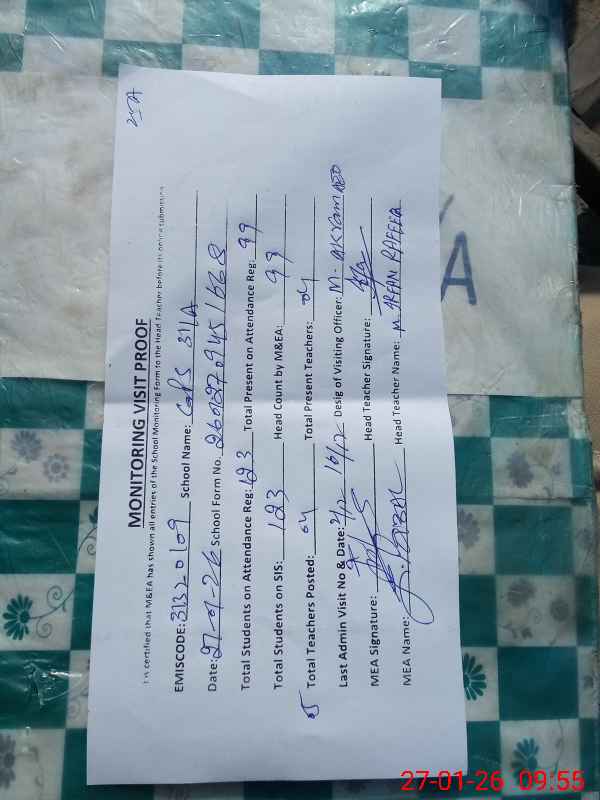 MONITORING VISIT PROOF
It is certified that M&EA has shown all entries of the School Monitoring Form to the Head Teacher before its online submission
EMISCODE: 31320109 School Name: GPS 311/A
Date: 27-01-26 School Form No. 260127094516
Total Students on Attendance Reg: 123 Total Present on Attendance Reg: 99
Total Students on SIS: 123 Head Count by M&EA: 99
Total Teachers Posted: 04 Total Present Teachers: 04
Last Admin Visit No & Date: 16/12 Desig of Visiting Officer: M. AKRAM AEO
MEA Signature: Head Teacher Signature:
MEA Name: Head Teacher Name: M. ARFAN RAFEEQ
A
27-01-26 09:55